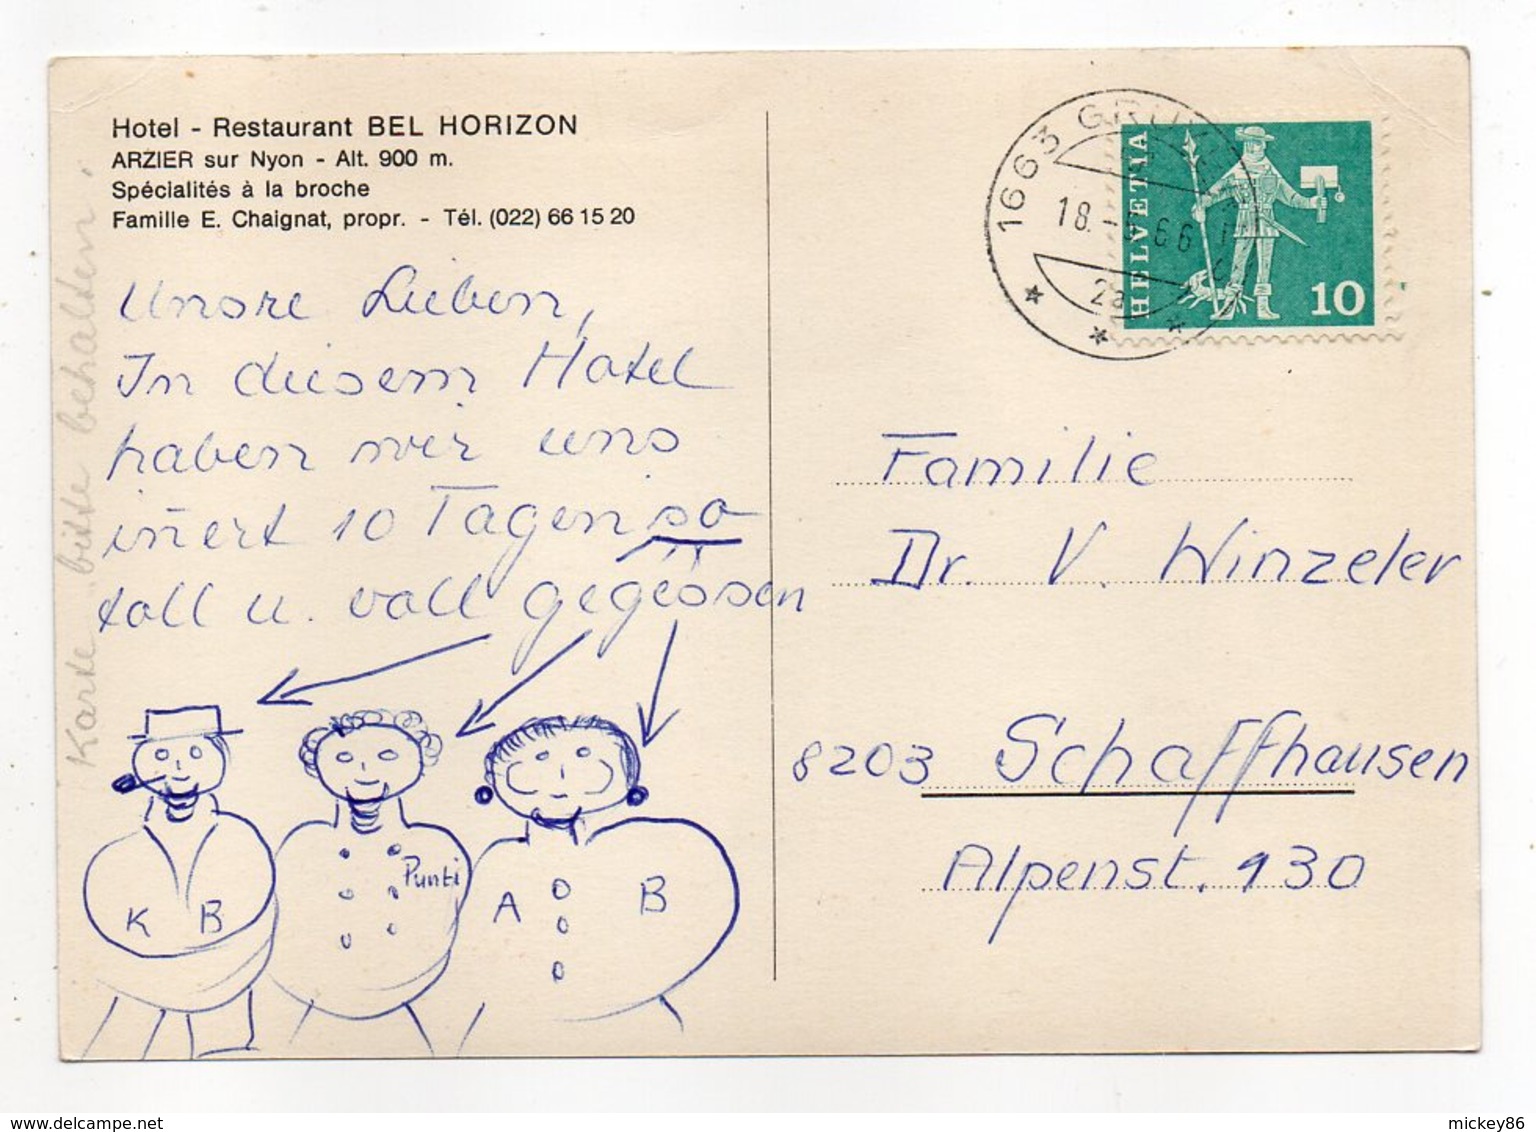 Hotel - Restaurant BEL HORIZON
ARZIER sur Nyon - Alt. 900 m.
Spécialités à la broche
Famille E. Chaignat, propr. - Tél. (022) 66 15 20
Unsre Lieben,
In diesem Hotel
haben wir uns
in̄ert 10 Tagen so
toll u. voll gegessen
K B
Punti
A B
Karte bitte behalten.
1663 GRU
18. 66
2a
HELVETIA
10
Familie
Dr. V. Winzeler
8203 Schaffhausen
Alpenst. 130
mickey86